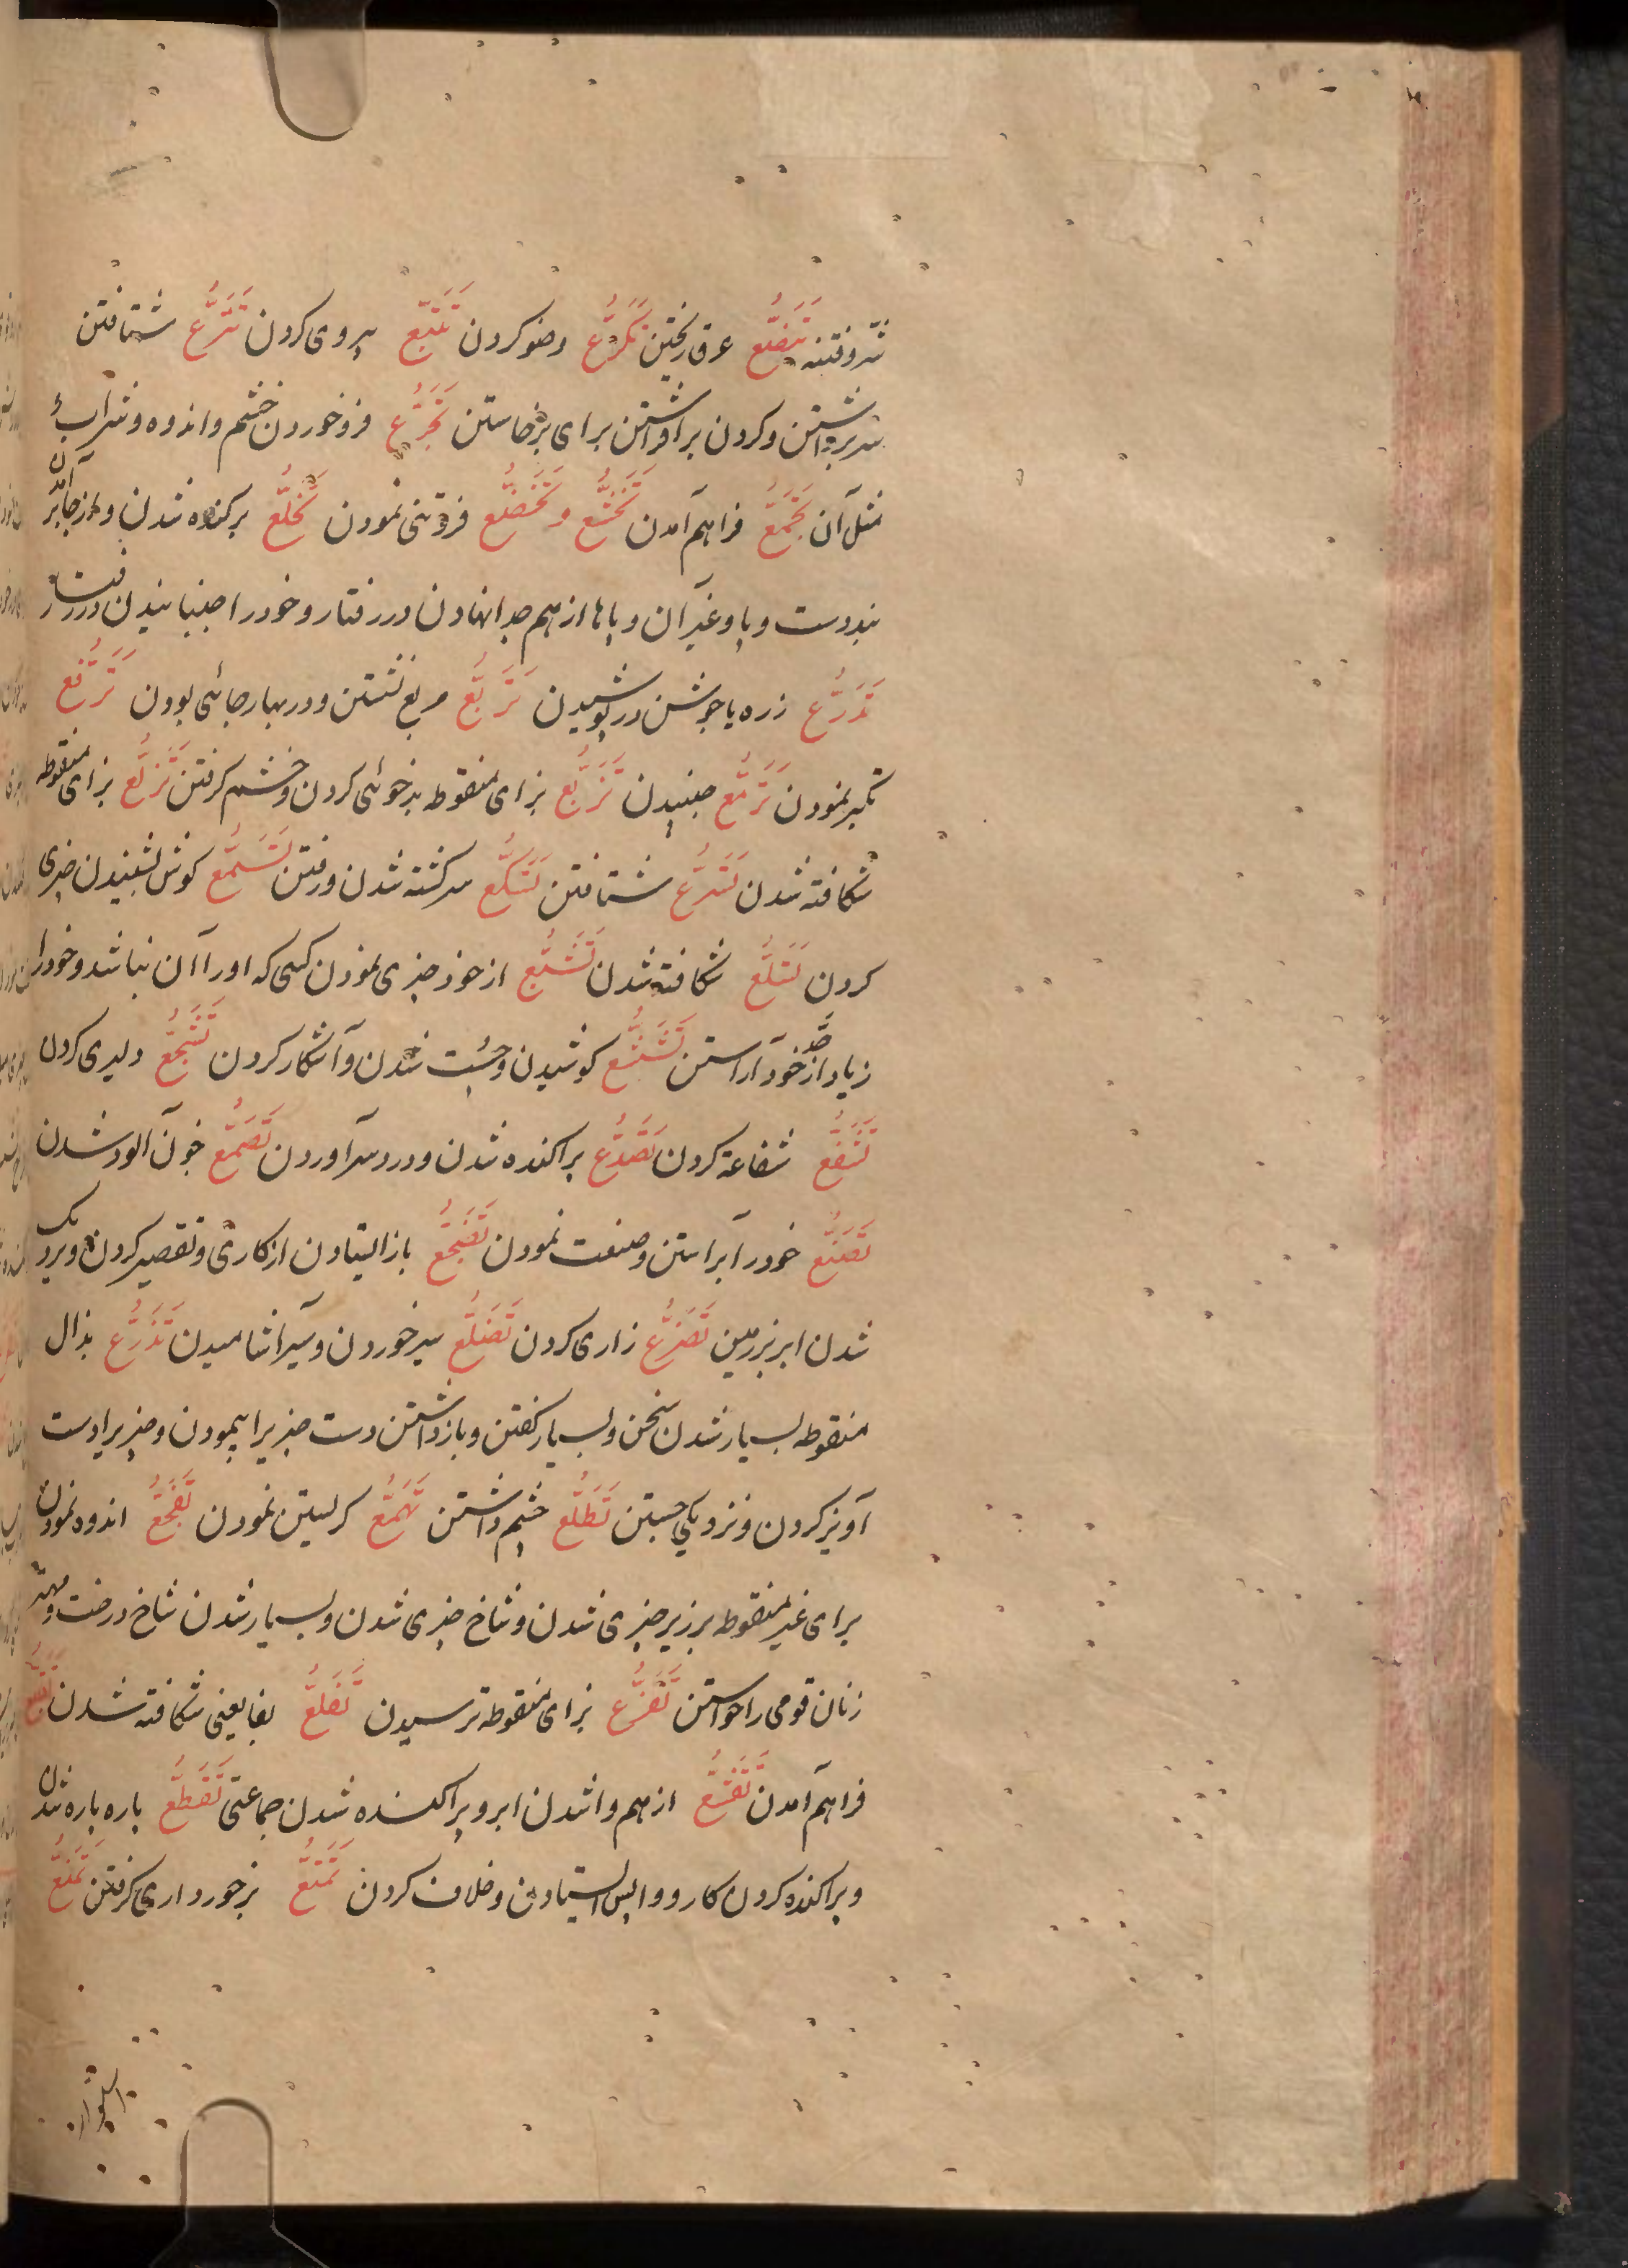 تَبَضُّع عرق ریختن تَکَرُّع وضو کردن تَتَبُّع پیروی کردن تَتَرُّع شتافتن
سر برداشتن و کردن برافراشتن برای برخاستن تَجَرُّع فرو خوردن خشم و اندوه و شراب
مثل آن تَجَمُّع فراهم آمدن تَخَشُّع و تَخَضُّع فروتنی نمودن تَخَلُّع برکنده شدن و از جا برآمدن
بند دست و پا و غیر آن و پاها از هم جدا نهادن در رفتار و خود را جنبانیدن در رفتار
تَدَرُّع زره یا جوشن در پوشیدن تَرَبُّع مربع نشستن و در بهار جائی بودن تَرَفُّع
تکبر نمودن تَرَمُّع جنبیدن تَزَبُّع بزای منقوطه بدخوئی کردن و خشم گرفتن تَزَلُّع بزای منقوطه
شکافته شدن تَسَرُّع شتافتن تَسَکُّع سرگشته شدن و رفتن تَسَمُّع گوش بشنیدن چیزی
کردن تَسَلُّع شکافته شدن تَشَبُّع از خود چیزی نمودن کسی که او را آن نباشد و خود را
زیاد از حد خود آراستن تَشَنُّع کوشیدن و چست شدن و آشکار کردن تَشَجُّع دلیری کردن
تَشَفُّع شفاعة کردن تَصَدُّع پراکنده شدن و درد سر آوردن تَصَمُّع خون آلود شدن
تَصَنُّع خود را براستن و صنعت نمودن تَضَجُّع باز ایستادن از کاری و تقصیر کردن در وی و نزدیک
شدن ابر بزمین تَضَرُّع زاری کردن تَضَلُّع سیر خوردن و سیر آشامیدن تَذَرُّع بذال
منقوطه بسیار شدن سخن و بسیار گفتن و باز داشتن دست چیزیرا پیمودن و چیزیرا دست
آویز کردن و نزدیکی جستن تَطَلُّع چشم داشتن تَهَمُّع گریستن نمودن تَفَجُّع اندوه نمودن
برای غیر منقوطه بر زبر چیزی شدن و شاخ چیزی شدن و بسیار شدن شاخ درخت و مهتر
زنان قومی را خواستن تَفَزُّع بزای منقوطه ترسیدن تَفَلُّع بفا یعنی شکافته شدن
فراهم آمدن تَقَشُّع از هم وا شدن ابر و پراکنده شدن جماعتی تَقَطُّع پاره پاره شدن
و پراکنده کردن کار و واپس ایستادن و خلاف کردن تَمَتُّع برخورداری گرفتن تَمَنُّع